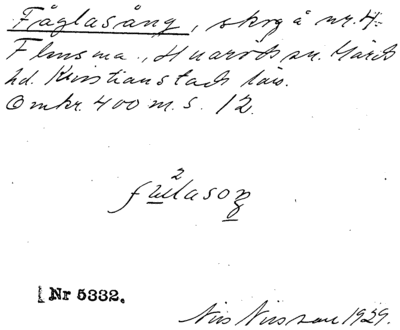 Fåglasång, skog å nr. 4
Flinsma., Huaröds sn. Gärds
hd. Kristianstads län.
Omkr. 400 m. S. 12.
2
Nr 5332.
Nils Nilsson 1929.